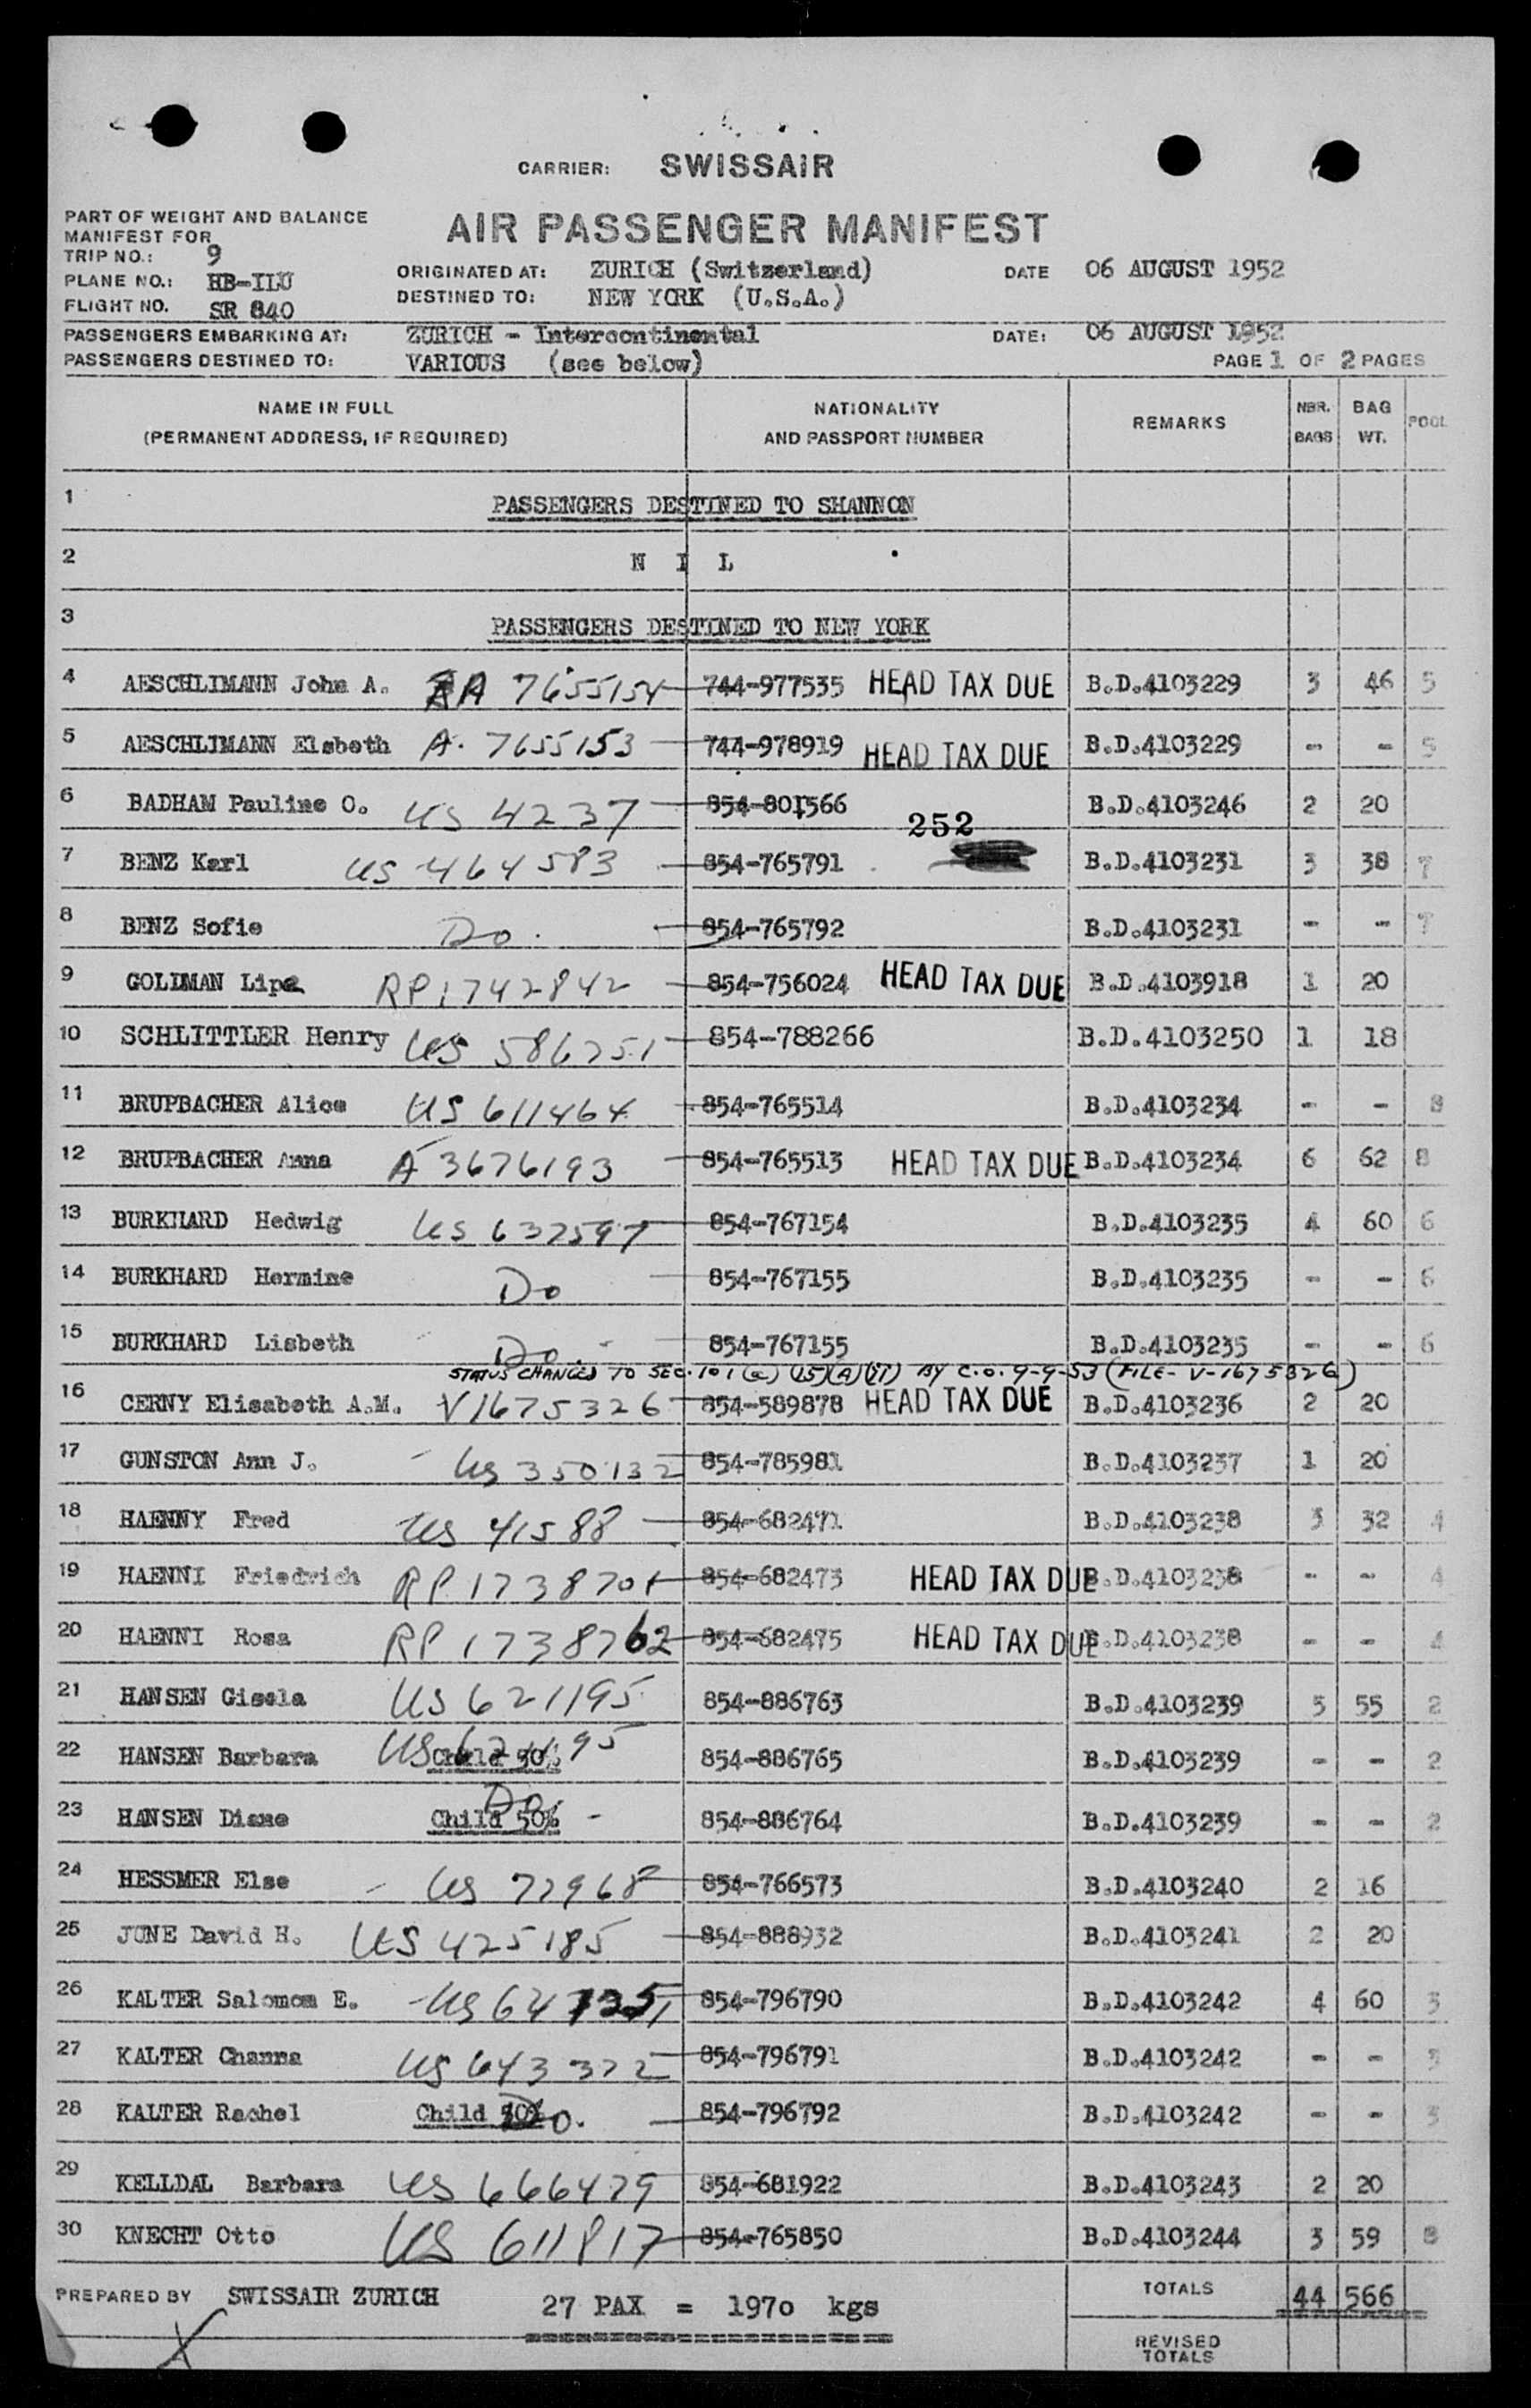 CARRIER: SWISSAIR
PART OF WEIGHT AND BALANCE
MANIFEST FOR
AIR PASSENGER MANIFEST
TRIP NO.: 9
PLANE NO.: HB-ILU
FLIGHT NO. SR 840
ORIGINATED AT: ZURICH (Switzerland) DATE 06 AUGUST 1952
DESTINED TO: NEW YORK (U.S.A.)
PASSENGERS EMBARKING AT: ZURICH - Intercontinental DATE: 06 AUGUST 1952
PASSENGERS DESTINED TO: VARIOUS (see below) PAGE 1 OF 2 PAGES
NAME IN FULL NATIONALITY REMARKS NBR. BAG POOL
(PERMANENT ADDRESS, IF REQUIRED) AND PASSPORT NUMBER BAGS WT.
1 PASSENGERS DESTINED TO SHANNON
2 N I L
3 PASSENGERS DESTINED TO NEW YORK
4 AESCHLIMANN John A. A 7655154 744-977535 HEAD TAX DUE B.D.4103229 3 46 5
5 AESCHLIMANN Elsbeth A. 7655153 744-978919 HEAD TAX DUE B.D.4103229 - - 5
6 BADHAM Pauline O. US 4237 854-801566 B.D.4103246 2 20
252
7 BENZ Karl US 464583 854-765791 B.D.4103231 3 38 7
8 BENZ Sofie Do. 854-765792 B.D.4103231 - - 7
9 GOLDMAN Lipa RP1742842 854-756024 HEAD TAX DUE B.D.4103918 1 20
10 SCHLITTLER Henry US 586251 854-788266 B.D.4103250 1 18
11 BRUPBACHER Alice US 611464 854-765514 B.D.4103234 - - 8
12 BRUPBACHER Anna A 3676193 854-765513 HEAD TAX DUE B.D.4103234 6 62 8
13 BURKHARD Hedwig US 632597 854-767154 B.D.4103235 4 60 6
14 BURKHARD Hermine Do 854-767155 B.D.4103235 - - 6
15 BURKHARD Lisbeth Do - 854-767155 B.D.4103235 - - 6
STATUS CHANGED TO SEC. 101 (a) (15)(A)(ii) BY C.O. 9-9-53 (FILE- V-1675326)
16 CERNY Elisabeth A.M. V1675326 854-589878 HEAD TAX DUE B.D.4103236 2 20
17 GUNSTON Ann J. US 350132 854-785981 B.D.4103237 1 20
18 HAENNY Fred US 41588 854-682471 B.D.4103238 3 32 4
19 HAENNI Friedrich RP 1738701 854-682473 HEAD TAX DUE B.D.4103238 - - 4
20 HAENNI Rosa RP 1738762 854-682475 HEAD TAX DUE B.D.4103238 - - 4
21 HANSEN Gisela US 621195 854-886763 B.D.4103239 5 55 2
22 HANSEN Barbara US 621195 Child 50% 854-886765 B.D.4103239 - - 2
23 HANSEN Diane Do. Child 50% - 854-886764 B.D.4103239 - - 2
24 HESSMER Else US 72968 854-766573 B.D.4103240 2 16
25 JUNE David H. US 425185 854-888932 B.D.4103241 2 20
26 KALTER Salomon E. US 854-796790 B.D.4103242 4 60 3
27 KALTER Channa US 643322 854-796791 B.D.4103242 - - 3
28 KALTER Rachel Child 50% Do. 854-796792 B.D.4103242 - - 3
29 KELLDAL Barbara US 666479 854-681922 B.D.4103243 2 20
30 KNECHT Otto US 611817 854-765850 B.D.4103244 3 59 8
PREPARED BY SWISSAIR ZURICH 27 PAX = 1970 kgs TOTALS 44 566
REVISED
TOTALS